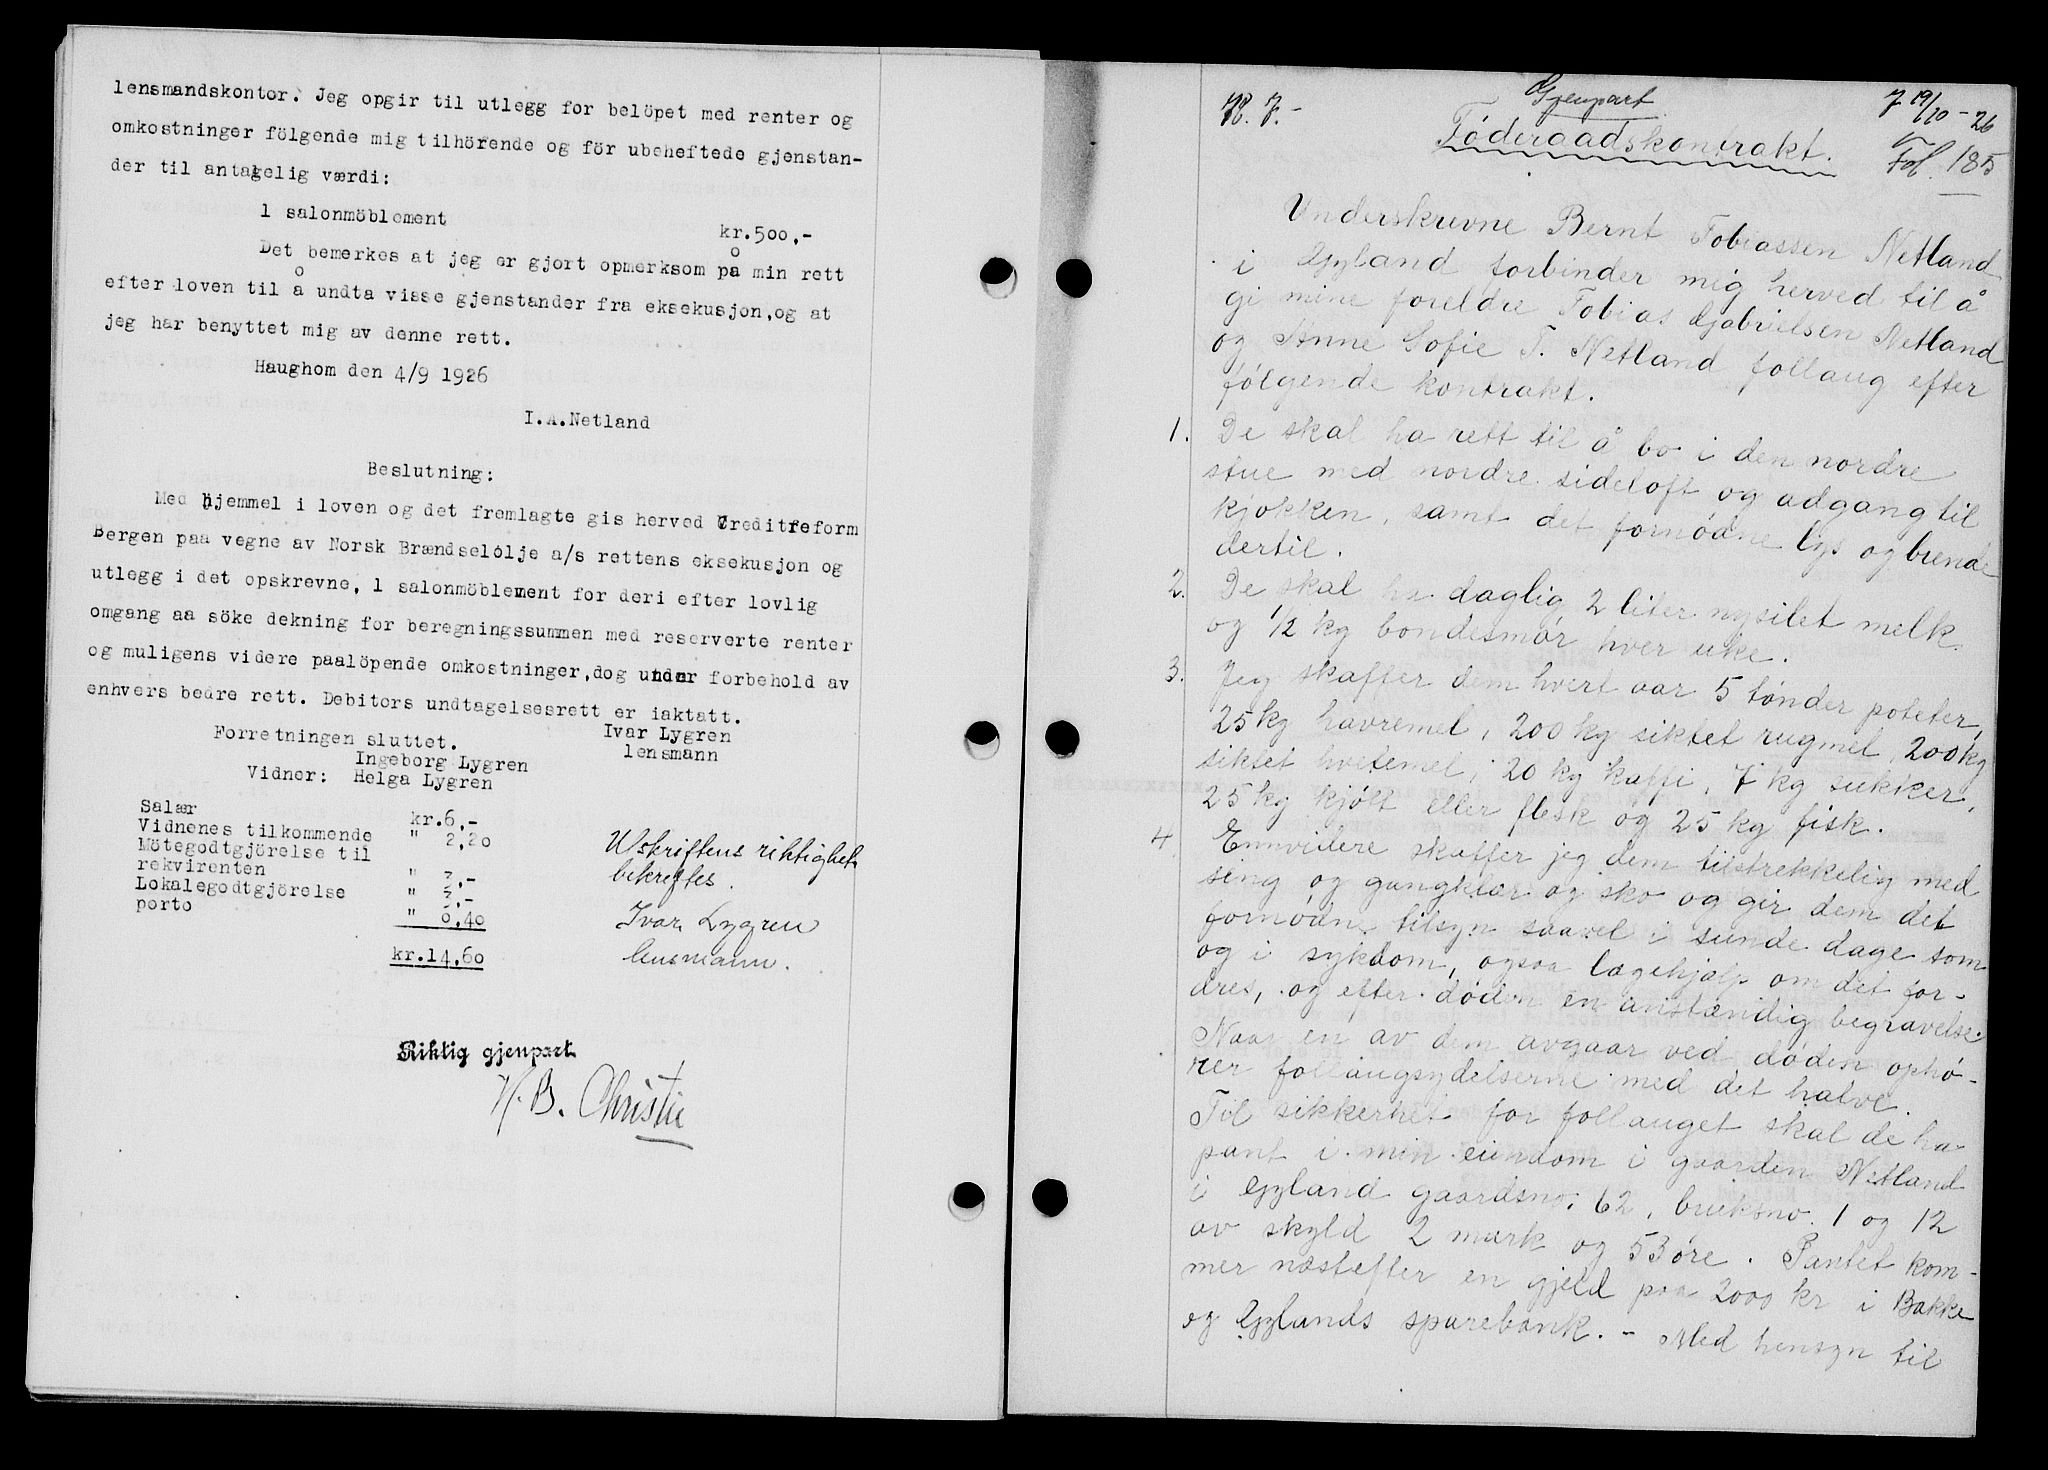 lensmandskontor. Jeg opgir til utlegg for belöpet med renter og
omkostninger fölgende mig tilhörende og för ubeheftede gjenstan-
der til antagelig værdi:
1 salonmöblement
kr.500,-
Det bemerkes at jeg er gjort opmerksom på min rett
efter loven til å undta visse gjenstander fra eksekusjon,og at
jeg har benyttet mig av denne rett.
Haughom den 4/9 1926
I.A.Netland
Beslutning:
Med hjemmel i loven og det fremlagte gis herved Creditreform
Bergen paa vegne av Norsk Brændselölje a/s rettens eksekusjon og
utlegg i det opskrevne, 1 salonmöblement for deri efter lovlig
omgang aa söke dekning for beregningssummen med reserverte renter
og muligens videre paalöpende omkostninger,dog under forbehold av
enhvers bedre rett. Debitors undtagelsesrett er iaktatt.
Forretningen sluttet.
Ivar Lygren
lensmann
Ingeborg Lygren
Vidner: Helga Lygren
Salær kr.6,-
Vidnenes tilkommende " 2,20
Mötegodtgjörelse til
rekvirenten " 3,-
Lokalegodtgjörelse " 3,-
porto " 0,40
kr.14,60
Utskriftens riktighet
bekreftes.
Ivar Lygren
lensmann.
Riktig gjenpart
N. B. Christie
No. 7.-
Gjenpart
7 19/10-26
Føderaadskontrakt.
Fol. 185
Underskrevne Bernt Tobiassen Netland
i Gyland forbinder mig herved til å
gi mine foreldre Tobias Gabrielsen Netland
og Anne Sofie T. Netland follaug efter
følgende kontrakt.
1. De skal ha rett til å bo i den nordre
stue med nordre sideloft og adgang til
kjøkken, samt det fornødne lys og brende
dertil.
2. De skal ha daglig 2 liter nysilet melk
og 1/2 kg bondesmør hver uke.
3. Jeg skaffer dem hvert aar 5 tønder poteter,
25 kg havremel, 200 kg siktet rugmel, 200 kg
siktet hvetemel, 20 kg kaffi, 7 kg sukker,
25 kg kjøtt eller flesk og 25 kg fisk.
4. Ennvidere skaffer jeg dem tilstrekkelig med
seng og gangklær og sko og gir dem det
fornødne tilsyn saavel i sunde dage som
og i sykdom, ogsaa lægehjælp om det for-
dres, og efter døden en anstændig begravelse.
Naar en av dem avgaar ved døden ophø-
rer follaugsydelserne med det halve.
Til sikkerhet for follauget skal de ha
pant i min eiendom i gaarden Netland
i Gyland gaardsno. 62, bruksno. 1 og 12
av skyld 2 mark og 53 øre. Pantet kom-
mer næstefter en gjeld paa 2000 kr i Bakke
og Gylands sparebank. - Med hensyn til